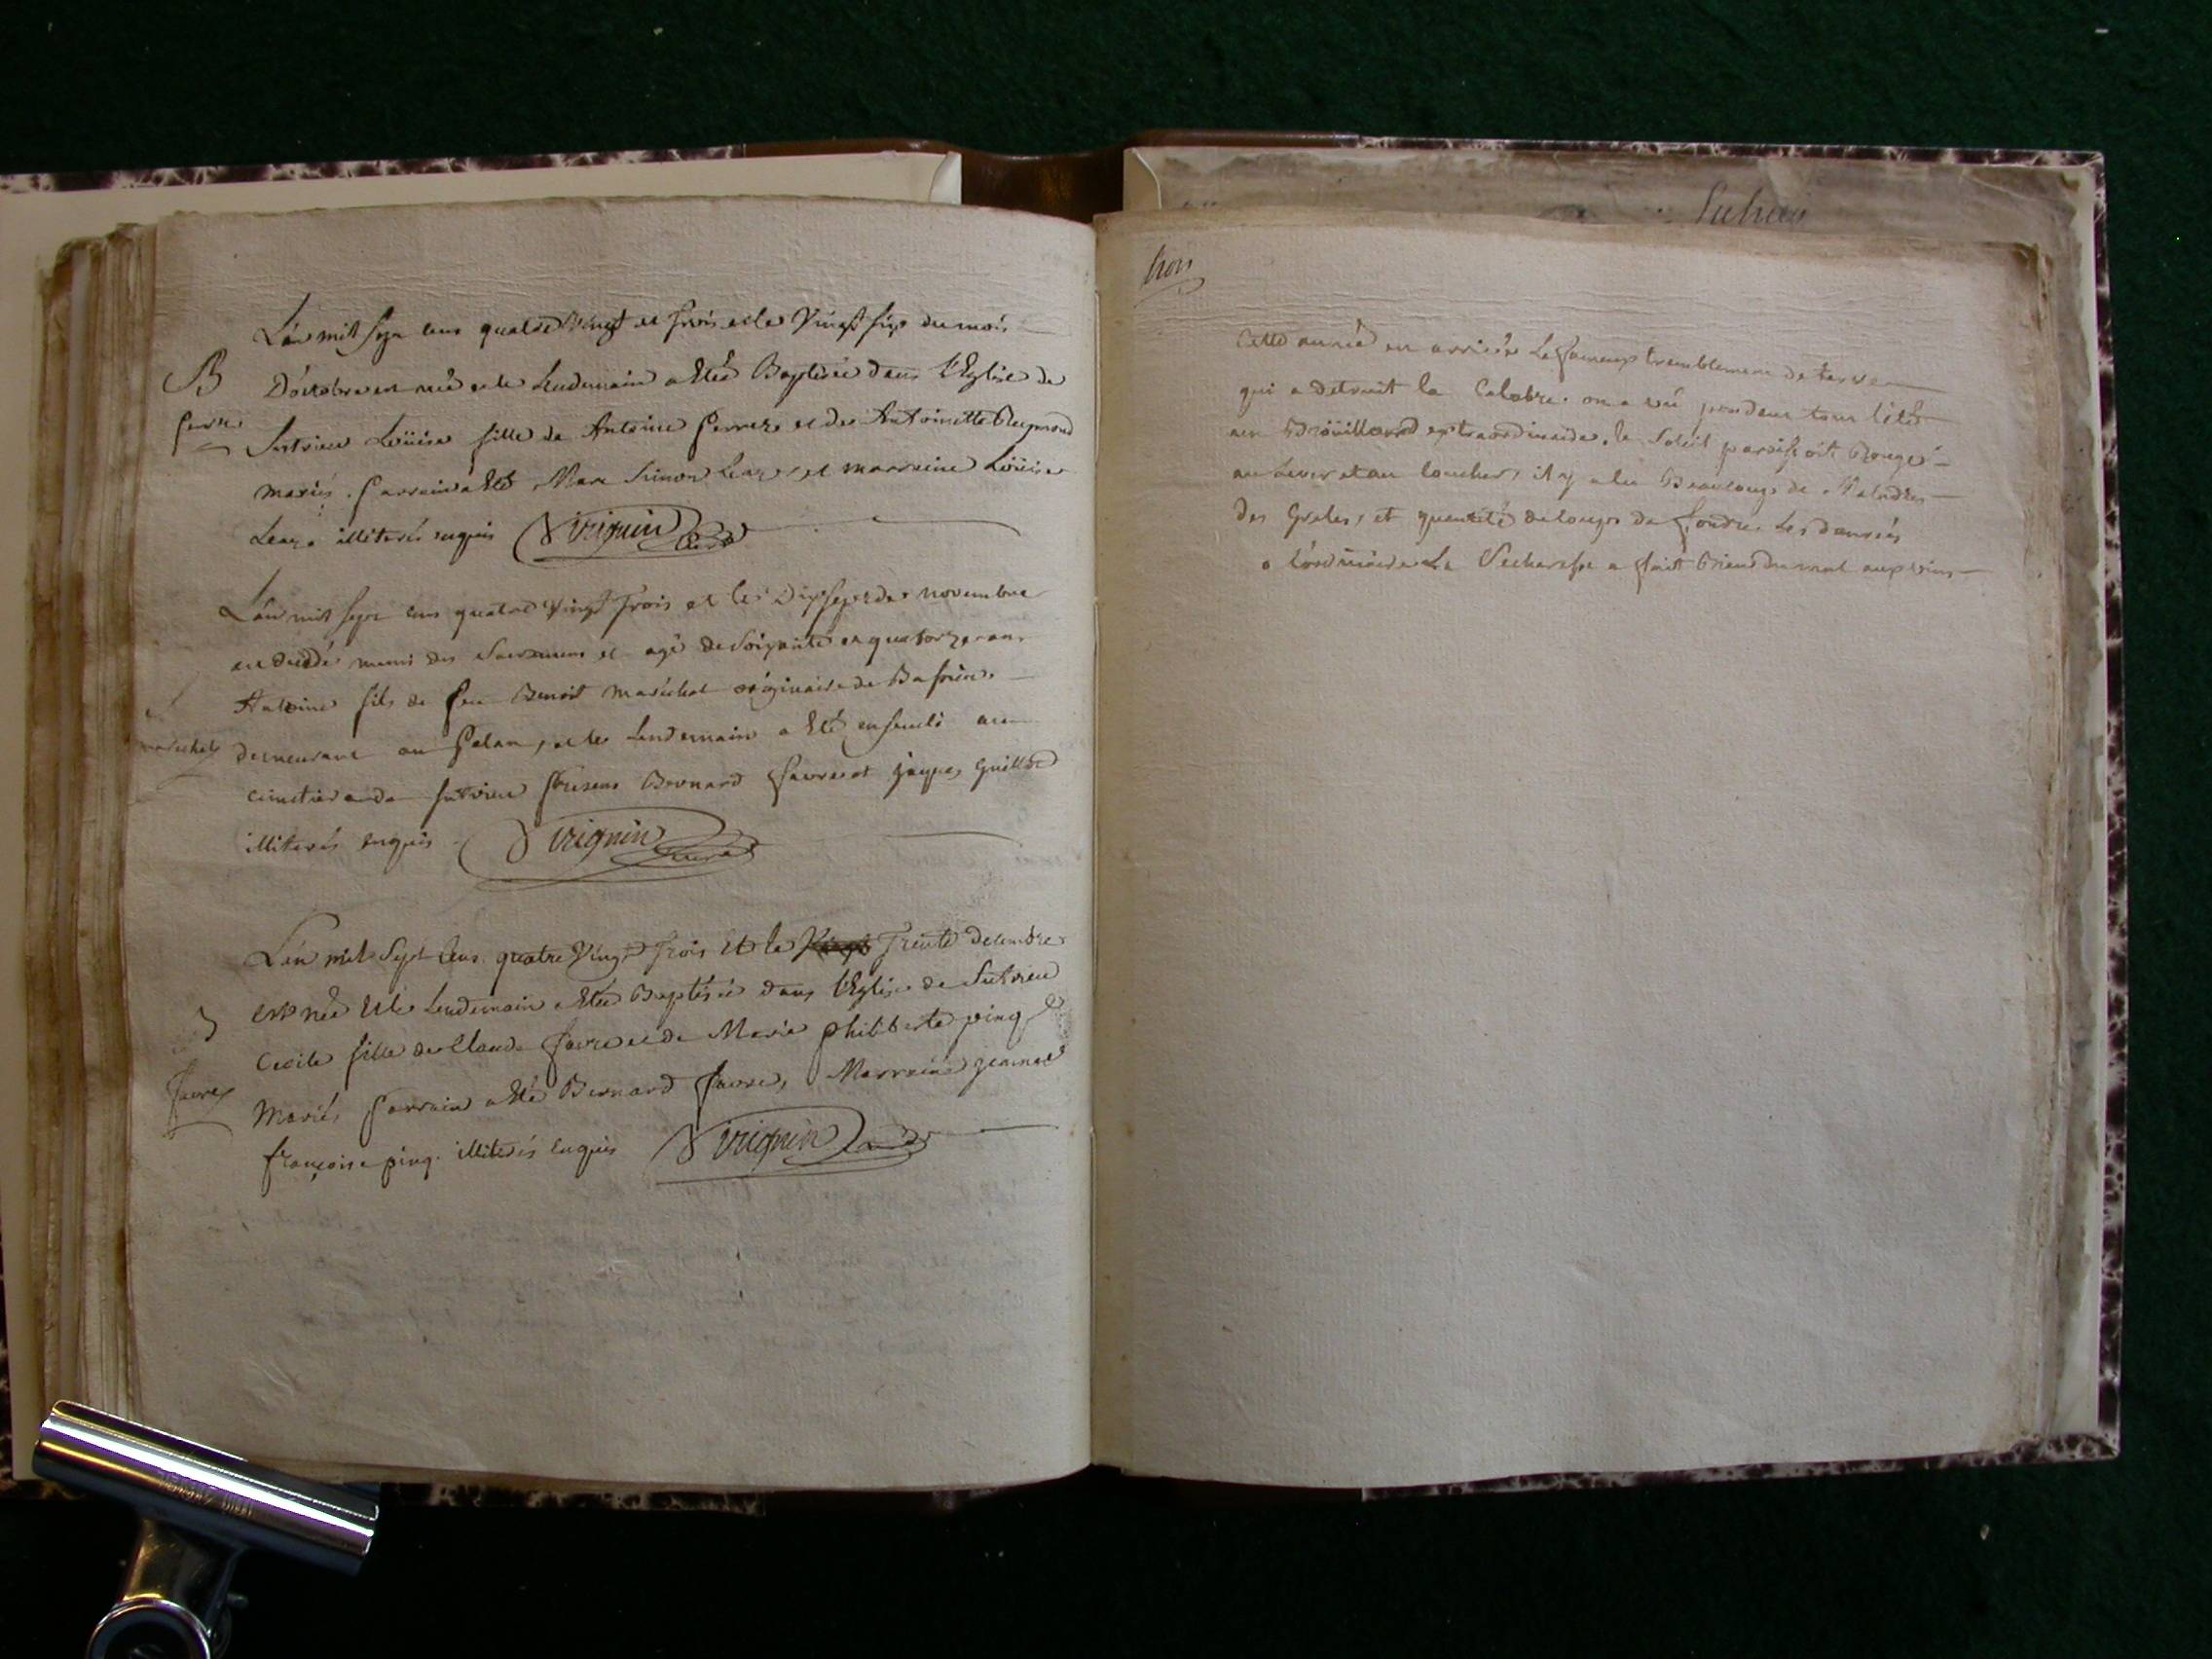 L'an mil sept cens quatre Vingt et trois et le Vingt six du mois
B
D'octobre est née et le Lendemain a Eté Baptisée dans l'Eglise de
Sutrieu Loüise fille de Antoine ferrer et de Antoinette Reymond
mariés . Parrain a Eté Marc Simon et marraine Loüise
illiterés enquis Virignin Curé
L'an mil sept cens quatre Vingt trois et le Dix sept de novembre
est décédé muni des Sacremens et agé de Soixante et quatorze ans
Antoine fils de feu Benoit maréchal originaire de
marechal
demeurant au , et le Lendemain a Eté enseveli au
cimetiere de Sutrieu présens Bernard favre et jaques Guillod
illiterés enquis . Virignin Curé
L'an mil Sept Cens quatre Vingt trois Et le Trente decembre
est née Et le Lendemain a Eté Baptisée dans l'Eglise de Sutrieu
Cecile fille de Claude favre et de Marie philiberte pinq
favre
Mariés parrain a Eté Bernard favre, Marraine jeanne
françoise pinq . illiterés enquis Virignin Curé
Sutrieu
trois
Cette année est arrivée Le fameux tremblement de terre
qui a detruit la Calabre . on a vû pendant tout l'été
un Broüillard extraordinaire, le Soleil paroissoit Rouge
au Lever et au Coucher, il y a Eu Beaucoup de Maladies
Des Greles, et quantité de Coups de foudre Les Denrées
a l'ordinaire La Secheresse a fait Bien du mal aux vins